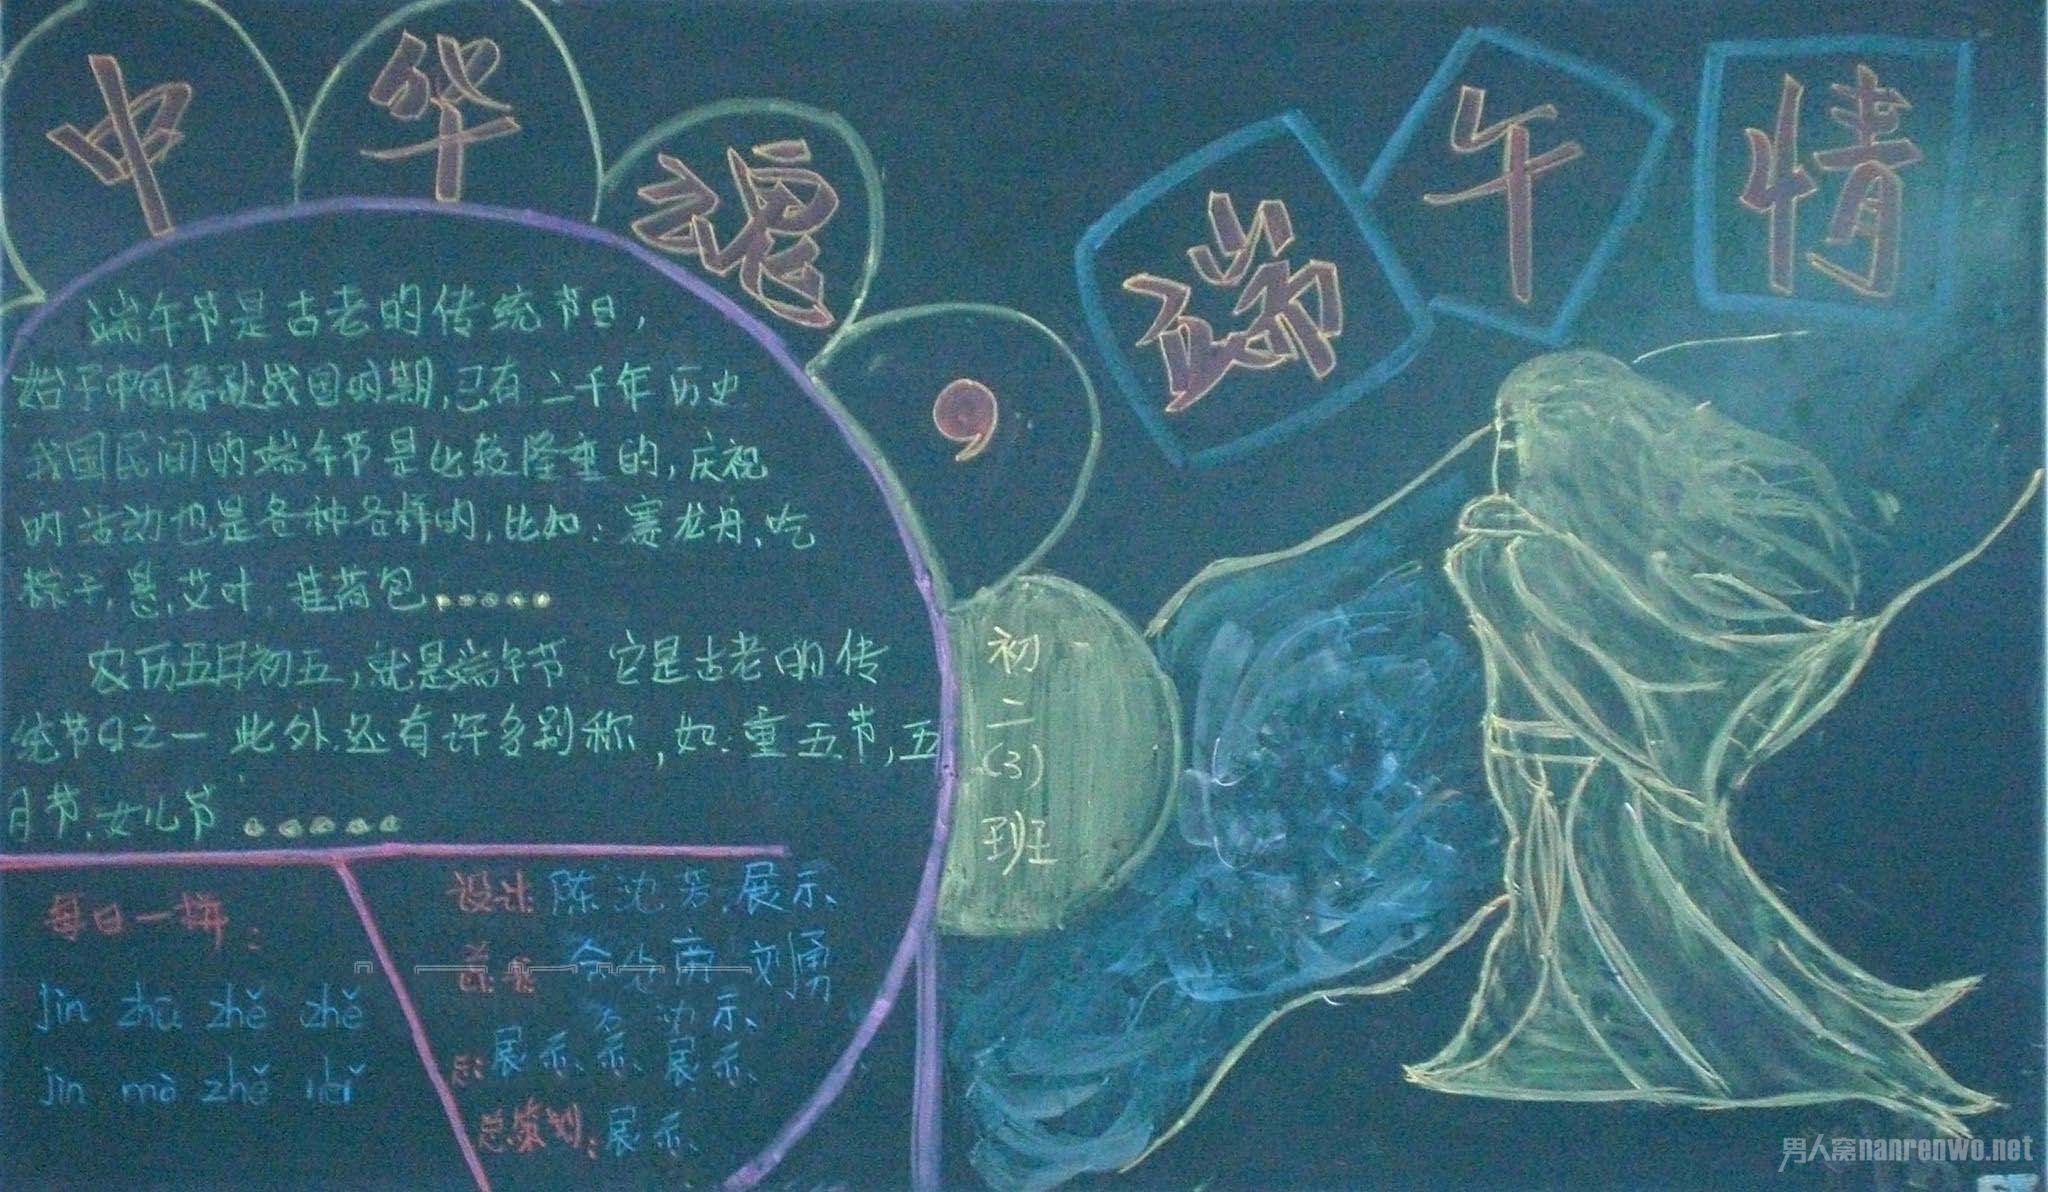 中华魂，端午情
端午节是古老的传统节日，
始于中国春秋战国时期，已有二千年历史
我国民间的端午节是比较隆重的，庆祝
的活动也是各种各样的，比如：赛龙舟、吃
粽子，悬，艾叶，挂荷包……
农历五月初五，就是端午节．它是古老的传
统节日之一．此外，还有许多别称，如：重五节，五
月节，女儿节……
初二(3)班
每日一拼：
jìn zhū zhě chě
jìn mò zhě
设计：陈沈芳、展示、
文勇
示、
展示、示、展示、
总策划：展示、
男人窝nanrenwo.net